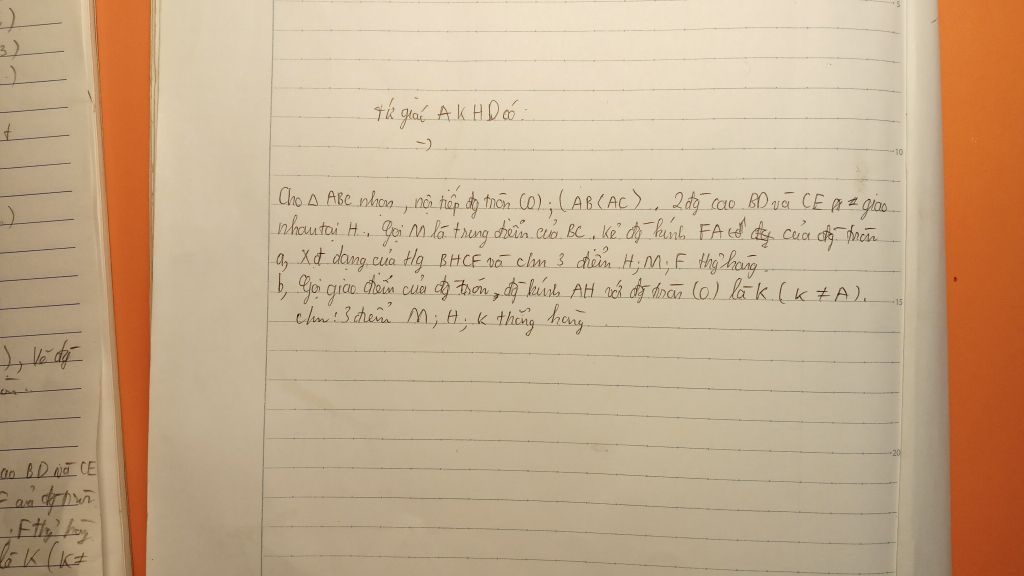 )
3)
.)
t
.)
), Vẽ đg̅
ao BD và CE
F của đg tròn
. F thg̉ hàng
là K (K ≠
5
10
15
20
tứ giác AKHD có:
=)
Cho △ ABC nhọn, nội tiếp đg tròn (O); (AB<AC). 2 đg̅ cao BD và CE giao
nhau tại H. Gọi M là trung điểm của BC, kẻ đg̅ kính FA của đg tròn
a, Xđ dạng của tg BHCF và cm 3 điểm H; M; F thg̉ hàng.
b, Gọi giao điểm của đg tròn, đg̅ kính AH với đg tròn (O) là K (K ≠ A).
cm: 3 điểm M; H; K thẳng hàng